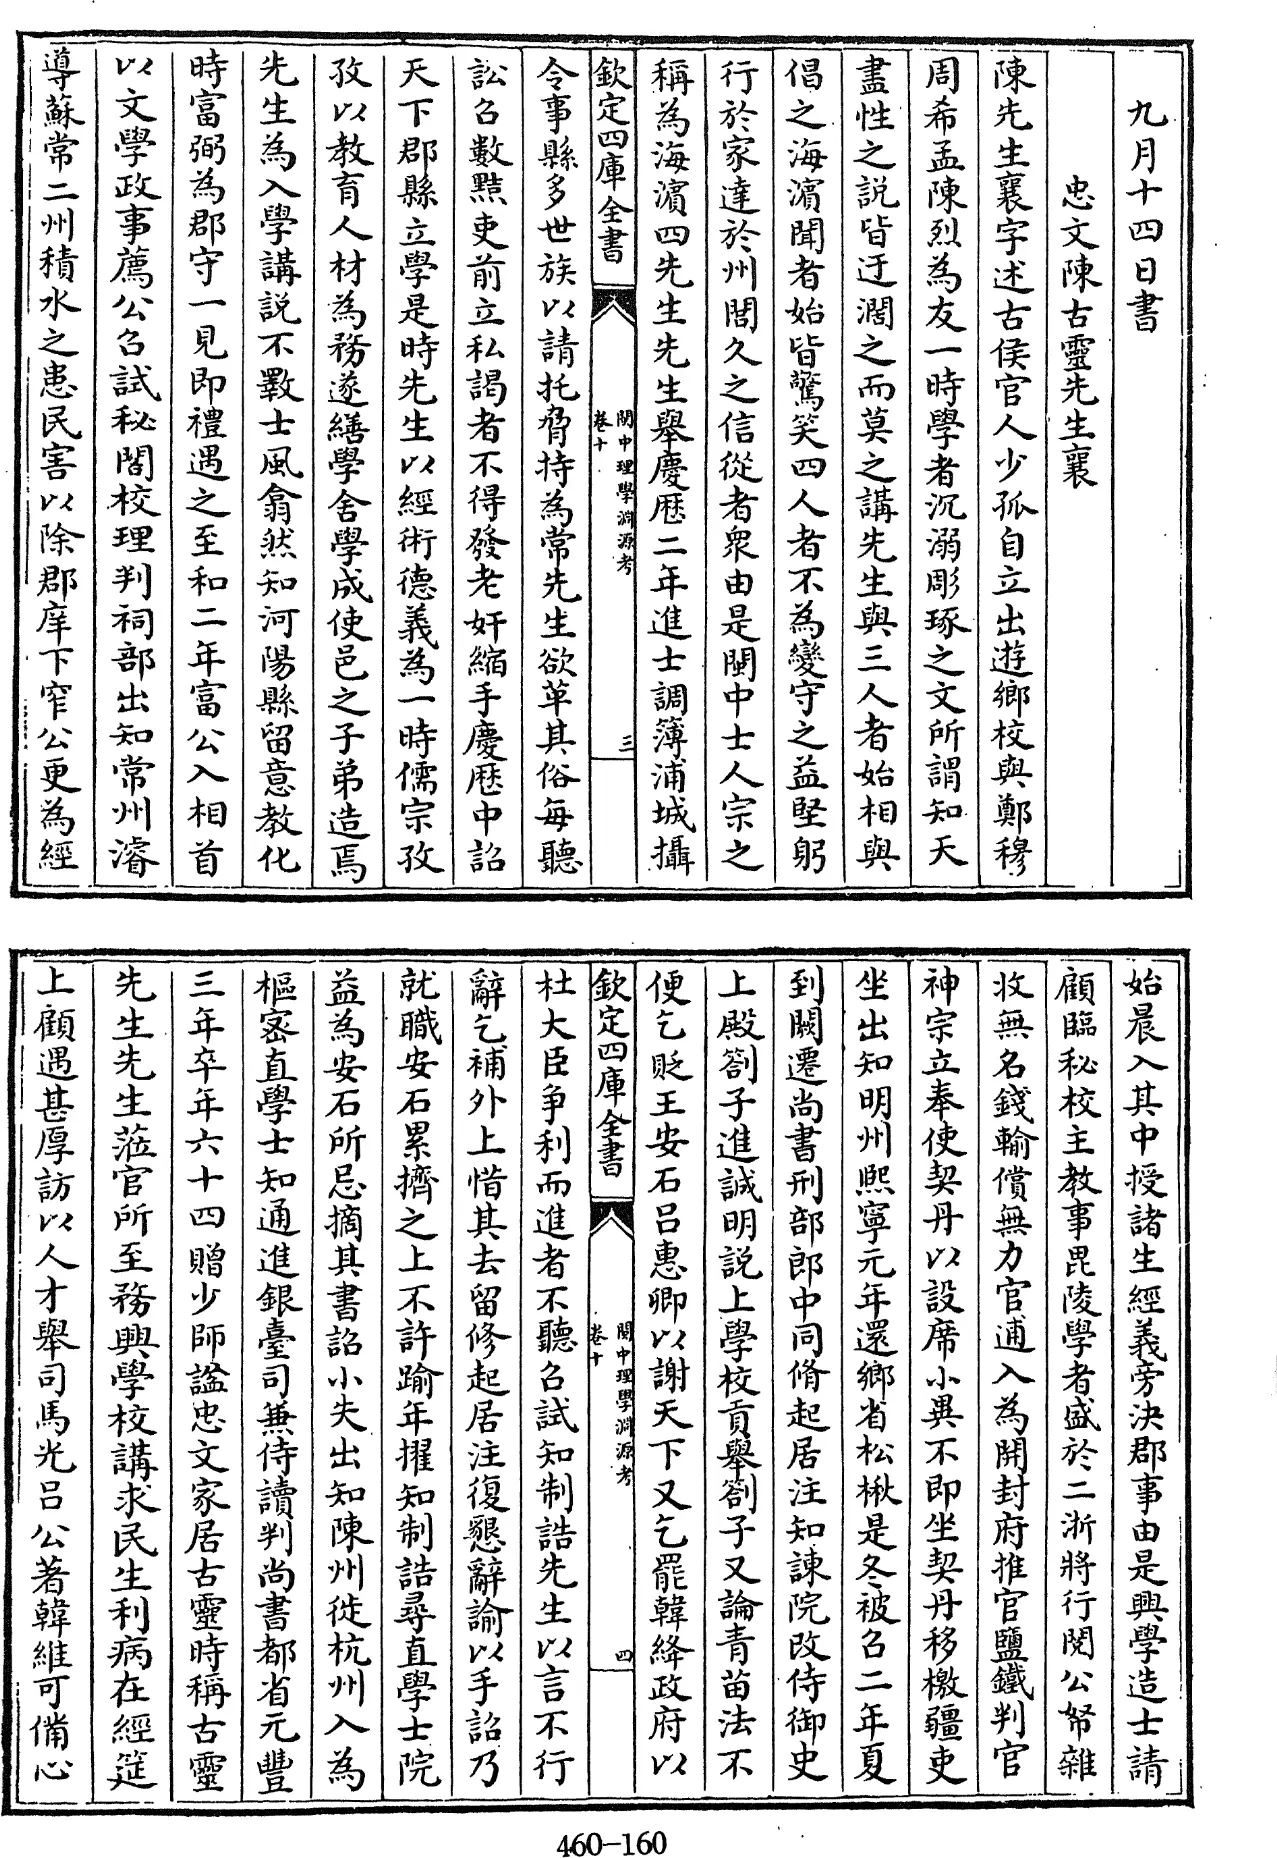 九月十四日書
忠文陳古靈先生襄
陳先生襄字述古侯官人少孤自立出遊鄉校與鄭穆
周希孟陳烈為友一時學者沉溺彫琢之文所謂知天
盡性之説皆迂濶之而莫之講先生與三人者始相與
倡之海濵聞者始皆驚笑四人者不為變守之益堅躬
行於家達於州閭久之信從者衆由是閩中士人宗之
稱為海濵四先生先生舉慶厯二年進士調簿浦城攝
欽定四庫全書
閩中理學淵源考
卷十
三
令事縣多世族以請托脅持為常先生欲革其俗每聽
訟召數黠吏前立私謁者不得發老奸縮手慶厯中詔
天下郡縣立學是時先生以經術德義為一時儒宗孜
孜以教育人材為務遂繕學舍學成使邑之子弟造焉
先生為入學講説不斁士風翕然知河陽縣留意教化
時富弼為郡守一見即禮遇之至和二年富公入相首
以文學政事薦公召試秘閣校理判祠部出知常州濬
導蘇常二州積水之患民害以除郡庠下窄公更為經
始晨入其中授諸生經義旁決郡事由是興學造士請
顧臨秘校主教事毘陵學者盛於二浙將行閲公帑雜
收無名錢輸償無力官逋入為開封府推官鹽鐵判官
神宗立奉使契丹以設席小異不即坐契丹移檄疆吏
坐出知明州熙寧元年還鄉省松楸是冬被召二年夏
到闕遷尚書刑部郎中同脩起居注知諫院改侍御史
上殿劄子進誠明説上學校貢舉劄子又論青苗法不
便乞貶王安石呂惠卿以謝天下又乞罷韓絳政府以
欽定四庫全書
閩中理學淵源考
卷十
四
杜大臣爭利而進者不聽召試知制誥先生以言不行
辭乞補外上惜其去留修起居注復懇辭諭以手詔乃
就職安石累擠之上不許踰年擢知制誥尋直學士院
益為安石所忌摘其書詔小失出知陳州徙杭州入為
樞密直學士知通進銀臺司兼侍讀判尚書都省元豐
三年卒年六十四贈少師諡忠文家居古靈時稱古靈
先生先生蒞官所至務興學校講求民生利病在經筵
上顧遇甚厚訪以人才舉司馬光呂公著韓維可備心
460-160